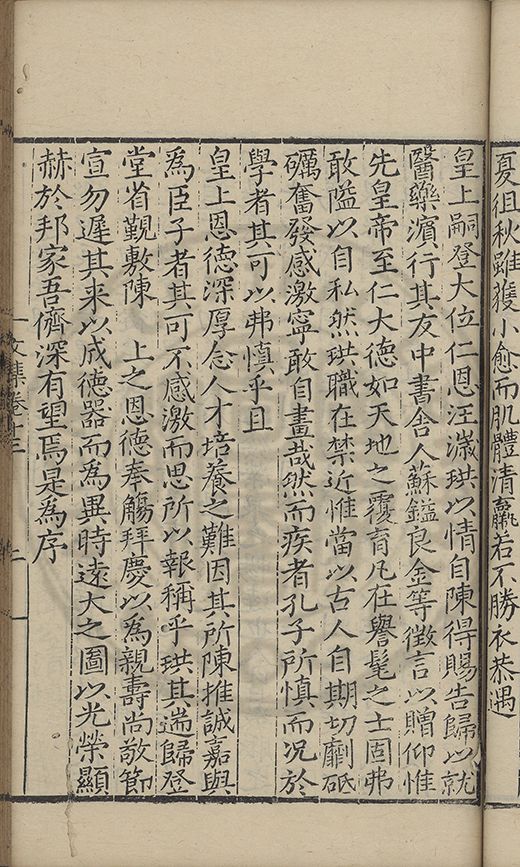 夏徂秋雖獲小愈而肌體清羸若不勝衣恭遇
皇上嗣登大位仁恩汪濊珙以情自陳得賜告歸以就
醫藥濵行其友中書舎人蘇鎰良金等徴言以贈仰惟
先皇帝至仁大德如天地之覆育凡在譽髦之士固弗
敢隘以自私然珙職在禁近惟當以古人自期切劘砥
礪奮發感激寧敢自畫哉然而疾者孔子所慎而況於
學者其可以弗慎乎且
皇上恩德深厚念人才培養之難因其所陳推誠嘉與
為臣子者其可不感激而思所以報稱乎珙其遄歸登
堂省覲敷陳　上之恩德奉觴拜慶以為親壽尚敬節
宣勿遲其来以成德器而為異時遠大之圖以光榮顯
赫於邦家吾儕深有望焉是為序
文集卷十三
二